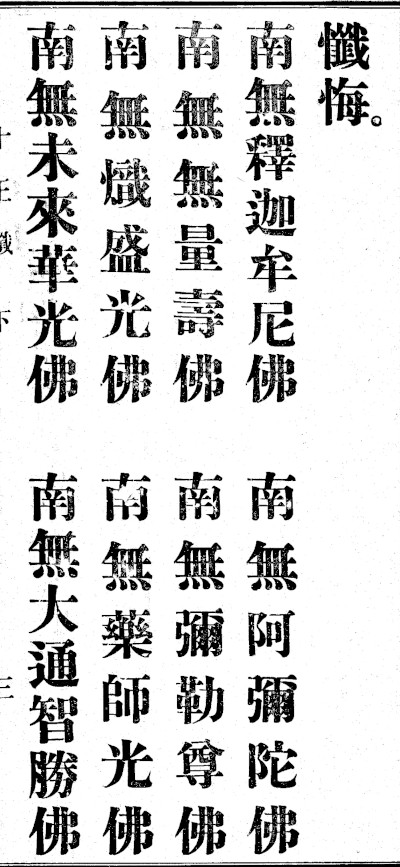 懺悔。
南無釋迦牟尼佛　南無阿彌陀佛
南無無量壽佛　南無彌勒尊佛
南無熾盛光佛　南無藥師光佛
南無未來華光佛　南無大通智勝佛
十王懺　下　三